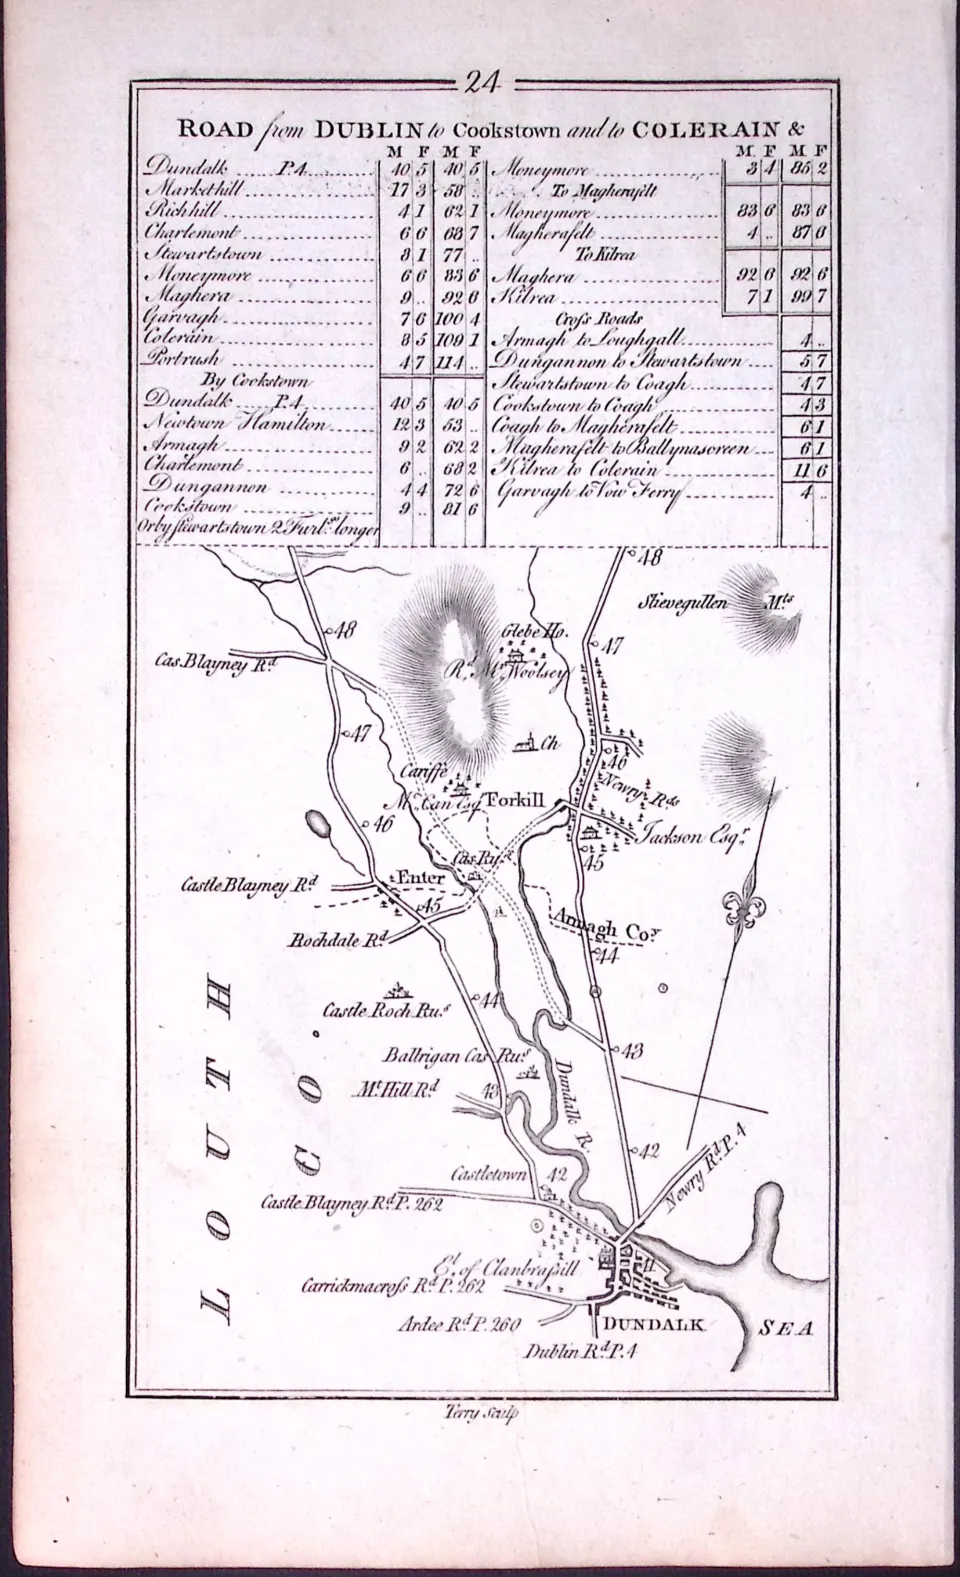 24
ROAD from DUBLIN to Cookstown and to COLERAIN &
M F M F
Dundalk P.4 40 5 40 5
Markethill 17 3 58 ..
Richhill 4 1 62 1
Charlemont 6 6 68 7
Stewartstown 8 1 77 ..
Moneymore 6 6 83 6
Maghera 9 .. 92 6
Garvagh 7 6 100 4
Colerain 8 5 109 1
Portrush 4 7 114 ..
By Cookstown
Dundalk P.4 40 5 40 5
Newtown Hamilton 12 3 53 ..
Armagh 9 2 62 2
Charlemont 6 .. 68 2
Dungannon 4 4 72 6
Cookstown 9 .. 81 6
Or by Stewartstown 2 Furl.gs longer
M F M F
Moneymore 3 4 85 2
To Magherafelt
Moneymore 83 6 83 6
Magherafelt 4 .. 87 6
To Kilrea
Maghera 92 6 92 6
Kilrea 7 1 99 7
Cross Roads
Armagh to Loughgall 4 ..
Dungannon to Stewartstown 5 7
Stewartstown to Coagh 4 7
Cookstown to Coagh 4 3
Coagh to Magherafelt 6 1
Magherafelt to Ballynascreen 6 1
Kilrea to Colerain 11 6
Garvagh to Vow Ferry 4 ..
48
Slievegullen Mts
48
Glebe Ho.
47
Cas. Blayney Rd.
Rd. Mr. Woolsey
47
Ch
46
Cariffe
Newry Rds
Mc. Can Esqr.
Forkill
46
Jackson Esqr.
Cas. Rus.
45
Castle Blayney Rd
Enter
45
Armagh Coy.
Rochdale Rd.
44
44
Castle Roch Rus.
43
Ballrigan Cas. Rus.
Mt. Hill Rd
43
Dundalk R.
LOUTH CO.
42
Newry Rd. P.4
Castletown
42
Castle Blayney Rd. P. 262
El. of Clanbrassill
Carrickmacross Rd. P. 262
Ardee Rd. P. 260
DUNDALK
SEA
Dublin Rd. P. 4
Terry Sculp